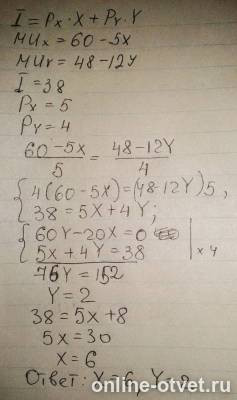 I = Px · X + Py · Y
MUx = 60 - 5x
MUy = 48 - 12Y
I = 38
Px = 5
Py = 4
60 - 5x / 5 = 48 - 12Y / 4
{ 4(60 - 5x) = (48 - 12Y)5 ,
38 = 5x + 4Y ;
{ 60Y - 20x = 0
5x + 4Y = 38 | x 4
76Y = 152
Y = 2
38 = 5x + 8
5x = 30
x = 6
Ответ: X = 6, Y = 2
online-otvet.ru